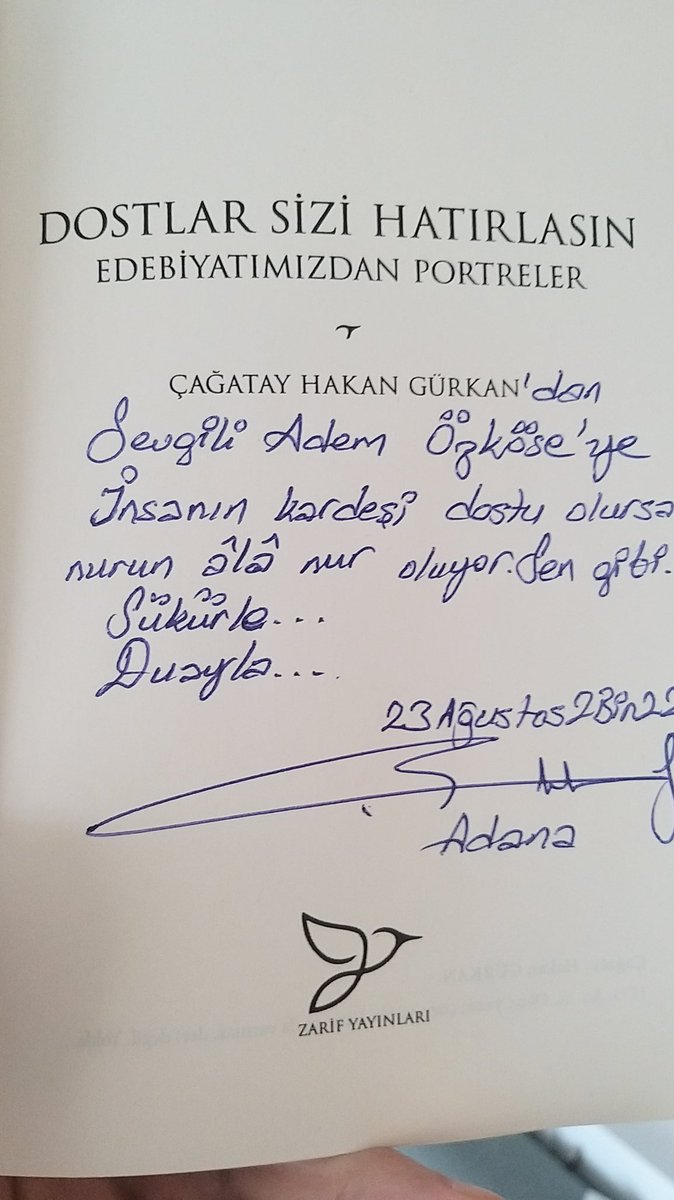 DOSTLAR SİZİ HATIRLASIN
EDEBİYATIMIZDAN PORTRELER
ÇAĞATAY HAKAN GÜRKAN'dan
Sevgili Adem Özköse'ye
İnsanın kardeşi dostu olursa
nurun âlâ nur oluyor. Sen gibi.
Şükürle...
Duayla....
23 Ağustos 2Bin22
Adana
ZARİF YAYINLARI